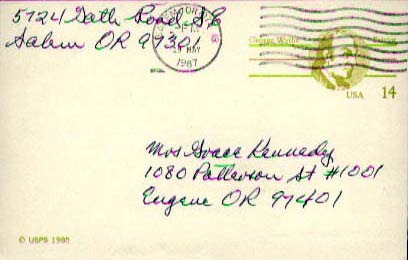 5724 Gath Road S.E
Salem OR 97301
PM
19 MAY
1987
George Wythe
USA 14
Mrs Grace Kennedy
1080 Patterson St #1001
Eugene OR 97401
© USPS 1985